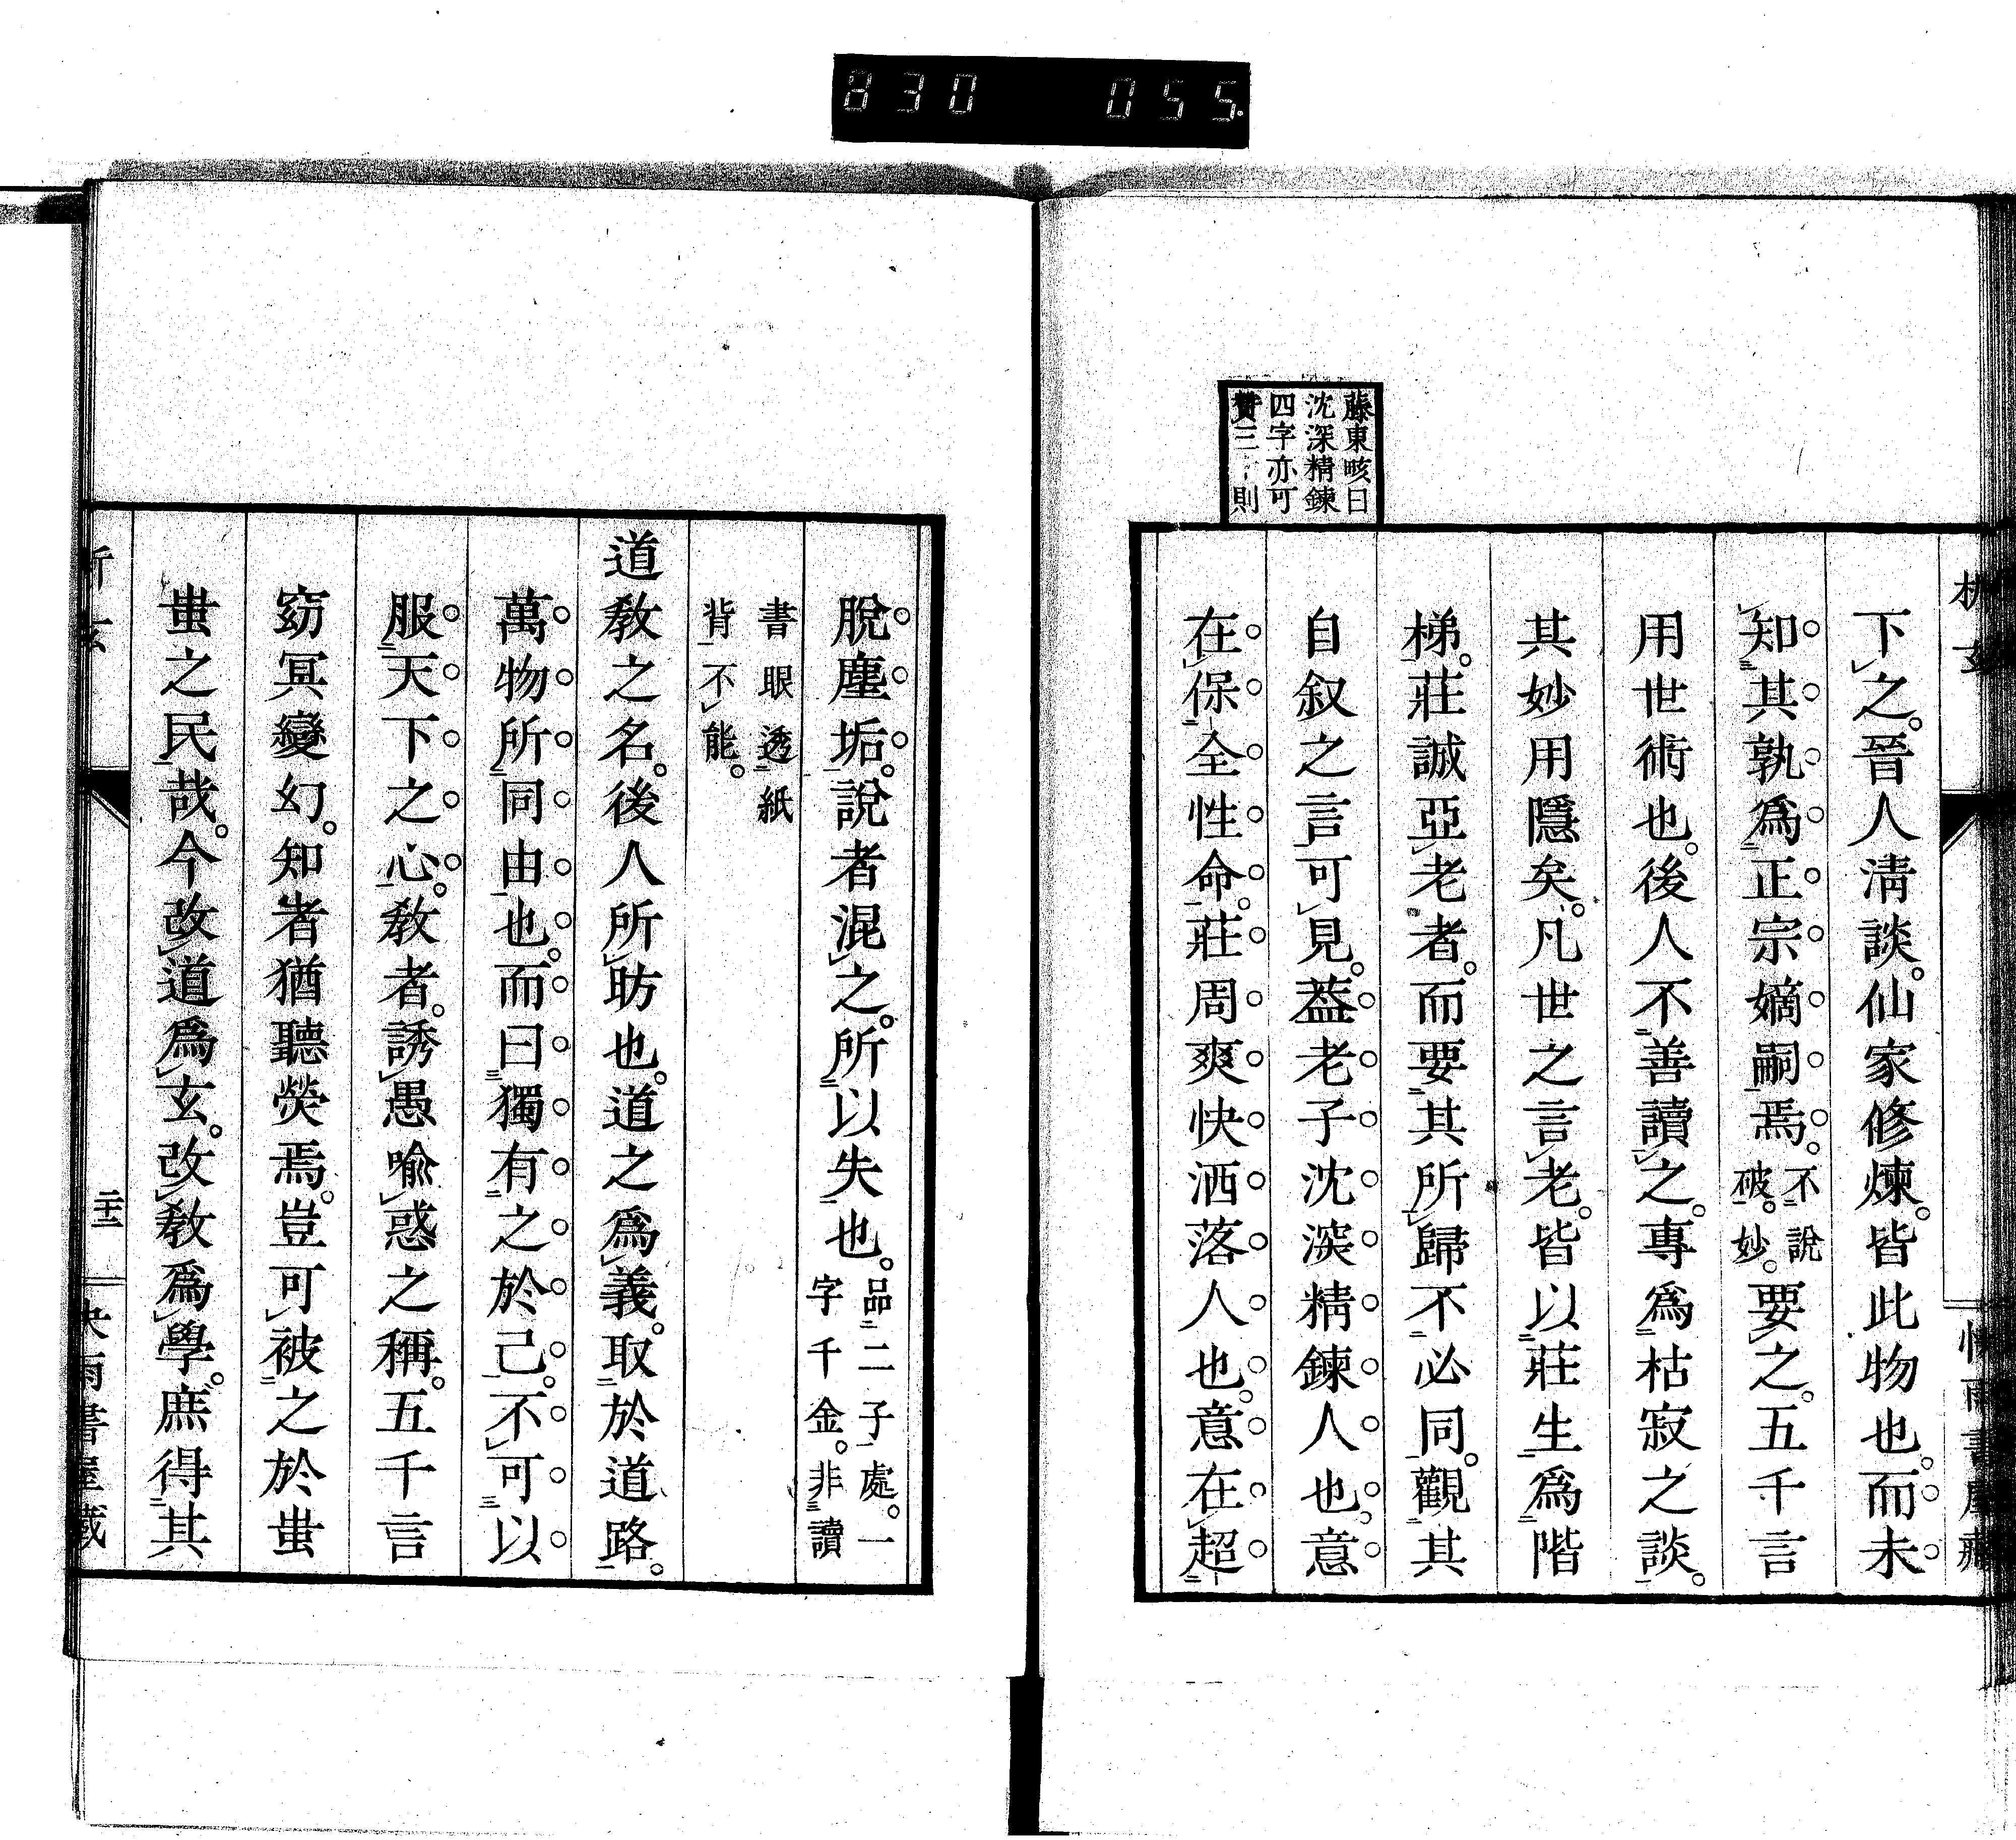 830 055
藤東畡曰
沈深精錬
四字亦可
贊三則
析玄
下之。晉人淸談。仙家修煉。皆此物也。而未
知其孰爲正宗嫡嗣焉。不說破。妙。要之。五千言
用世術也。後人不善讀之。專爲枯寂之談。
其妙用隱矣。凡世之言老。皆以莊生爲階
梯。莊誠亞老者。而要其所歸不必同。觀其
自叙之言可見。葢老子沈深精鍊人也。意
在保全性命。莊周爽快洒落人也。意在超
脫塵垢。說者混之。所以失也。品二子處。一字千金。非讀
書眼透紙背不能。
道敎之名。後人所昉也。道之爲義。取於道路。
萬物所同由也。而曰獨有之於己。不可以
服天下之心。敎者。誘愚喩惑之稱。五千言
窈冥變幻。知者猶聽熒焉。豈可被之於蚩
蚩之民哉。今改道爲玄。改敎爲學。庶得其
二十二
快雨書屋藏